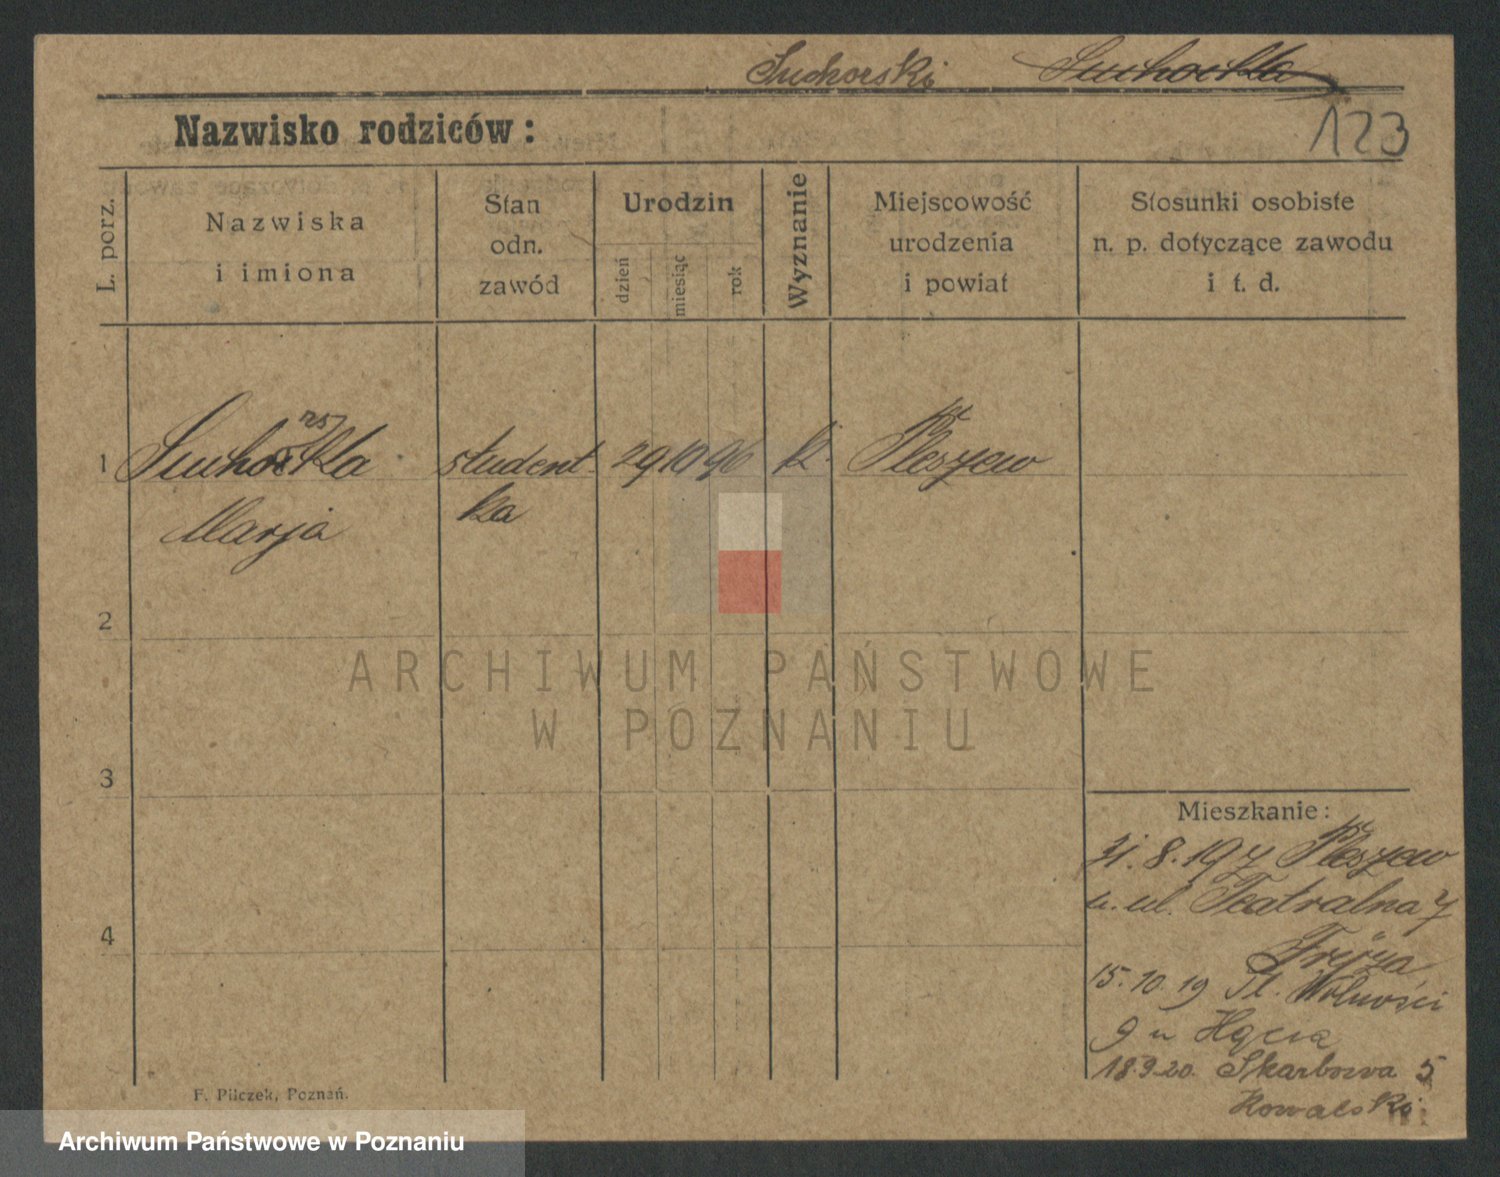 Suchorski Suchocka
Nazwisko rodziców:
123
L. porz.
Nazwiska
i imiona
Stan
odn.
zawód
Urodzin
dzień
miesiąc
rok
Wyznanie
Miejscowość
urodzenia
i powiat
Stosunki osobiste
n. p. dotyczące zawodu
i t. d.
rs
1 Suchocka student- 29 10 96 k. Pleszew
Marja ka
2
ARCHIWUM PAŃSTWOWE
W POZNANIU
3
Mieszkanie:
31.8.19 z Pleszew
u. ul. Teatralna 7
4
15.10.19 Pl. Wolności
9 u Hącia
18.9.20. Skarbowa 5
Kowalski
F. Pilczek, Poznań.
Archiwum Państwowe w Poznaniu